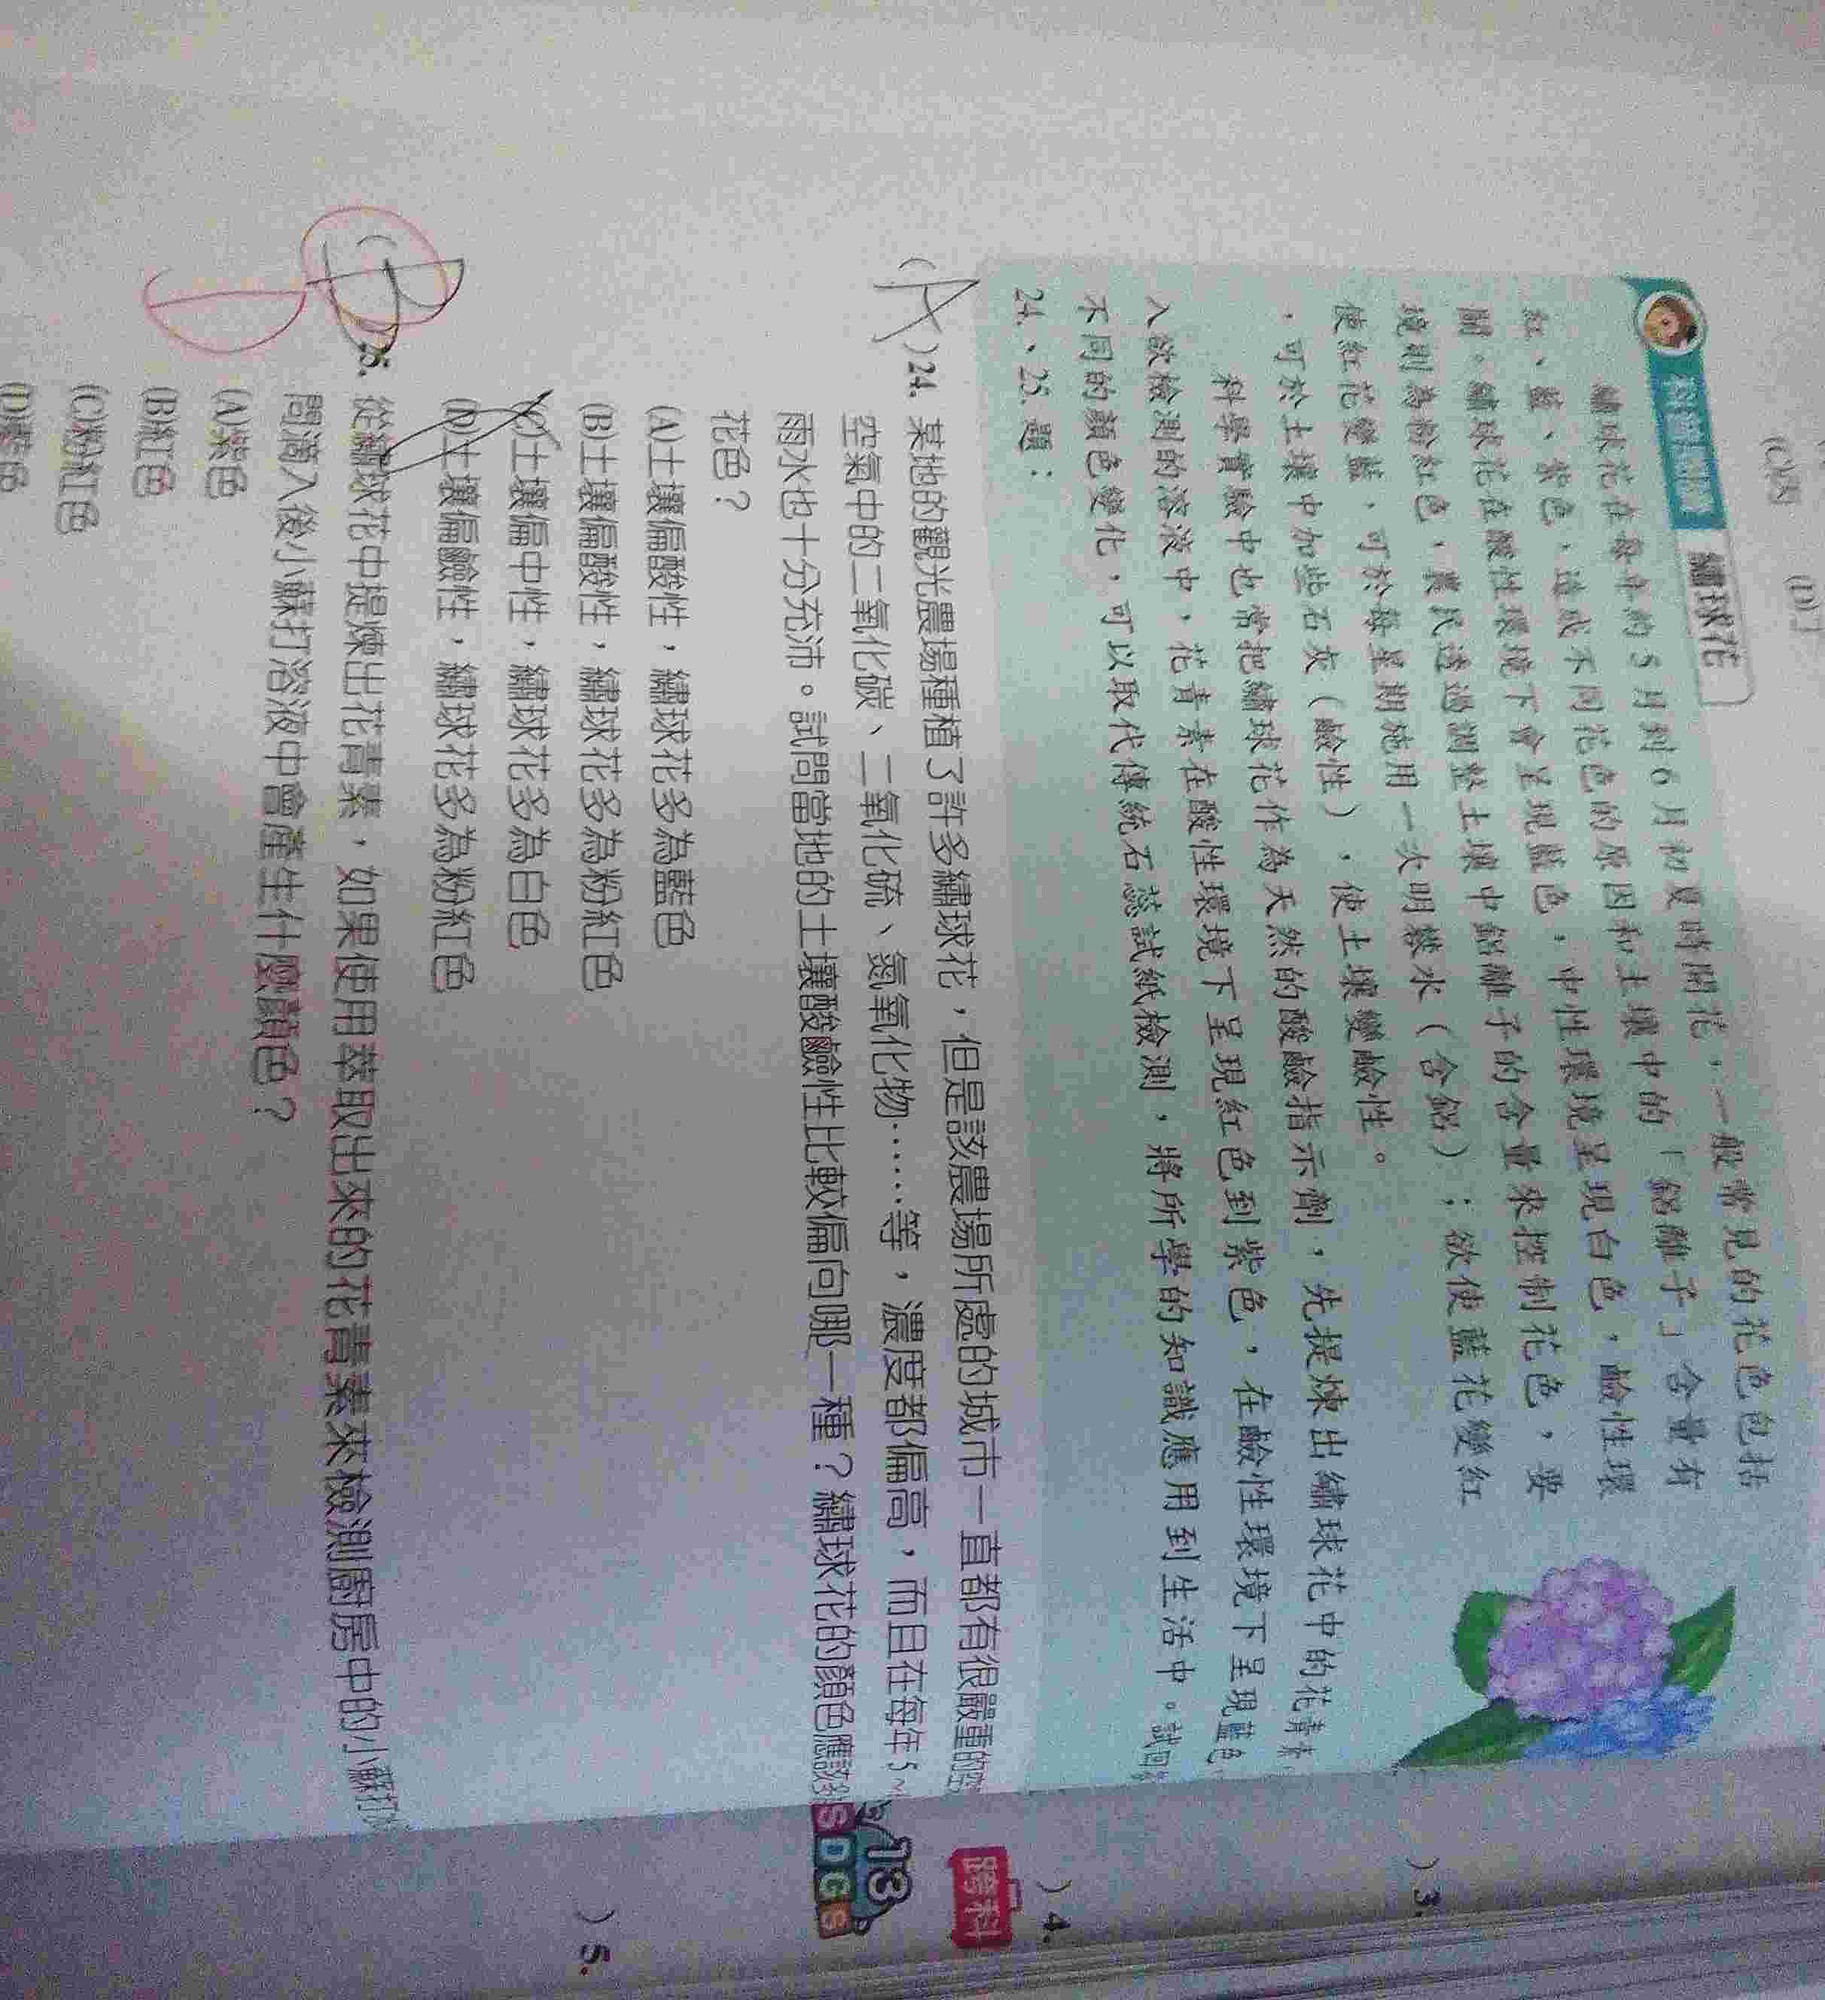 (C)丙
(D)丁
繡球花
繡球花在每年的5月到6月初夏時開花，一般常見的花色包括
紅、藍、紫色，造成不同花色的原因和土壤中的「鋁離子」含量有
關。繡球花在酸性環境下會呈現藍色，中性環境呈現白色，鹼性環
境則為粉紅色，農民透過調整土壤中鋁離子的含量來控制花色，要
使紅花變藍，可於每星期施用一次明礬水（含鋁）；欲使藍花變紅
，可於土壤中加些石灰（鹼性），使土壤變鹼性。
科學實驗中也常把繡球花作為天然的酸鹼指示劑，先提煉出繡球花中的花青素，
入欲檢測的溶液中，花青素在酸性環境下呈現紅色到紫色，在鹼性環境下呈現藍色
不同的顏色變化，可以取代傳統石蕊試紙檢測，將所學的知識應用到生活中。試回
24.、25.題：
(A)24. 某地的觀光農場種植了許多繡球花，但是該農場所處的城市一直都有很嚴重的空
空氣中的二氧化碳、二氧化硫、氮氧化物……等，濃度都偏高，而且在每年5~
雨水也十分充沛。試問當地的土壤酸鹼性比較偏向哪一種？繡球花的顏色應該
花色？
(A)土壤偏酸性，繡球花多為藍色
(B)土壤偏酸性，繡球花多為粉紅色
(C)土壤偏中性，繡球花多為白色
(D)土壤偏鹼性，繡球花多為粉紅色
(B 5. 從繡球花中提煉出花青素，如果使用萃取出來的花青素來檢測廚房中的小蘇打
問滴入後小蘇打溶液中會產生什麼顏色？
(A)紫色
(B)紅色
(C)粉紅色
跨科
13
SDGs
)3.
)4.
)5.